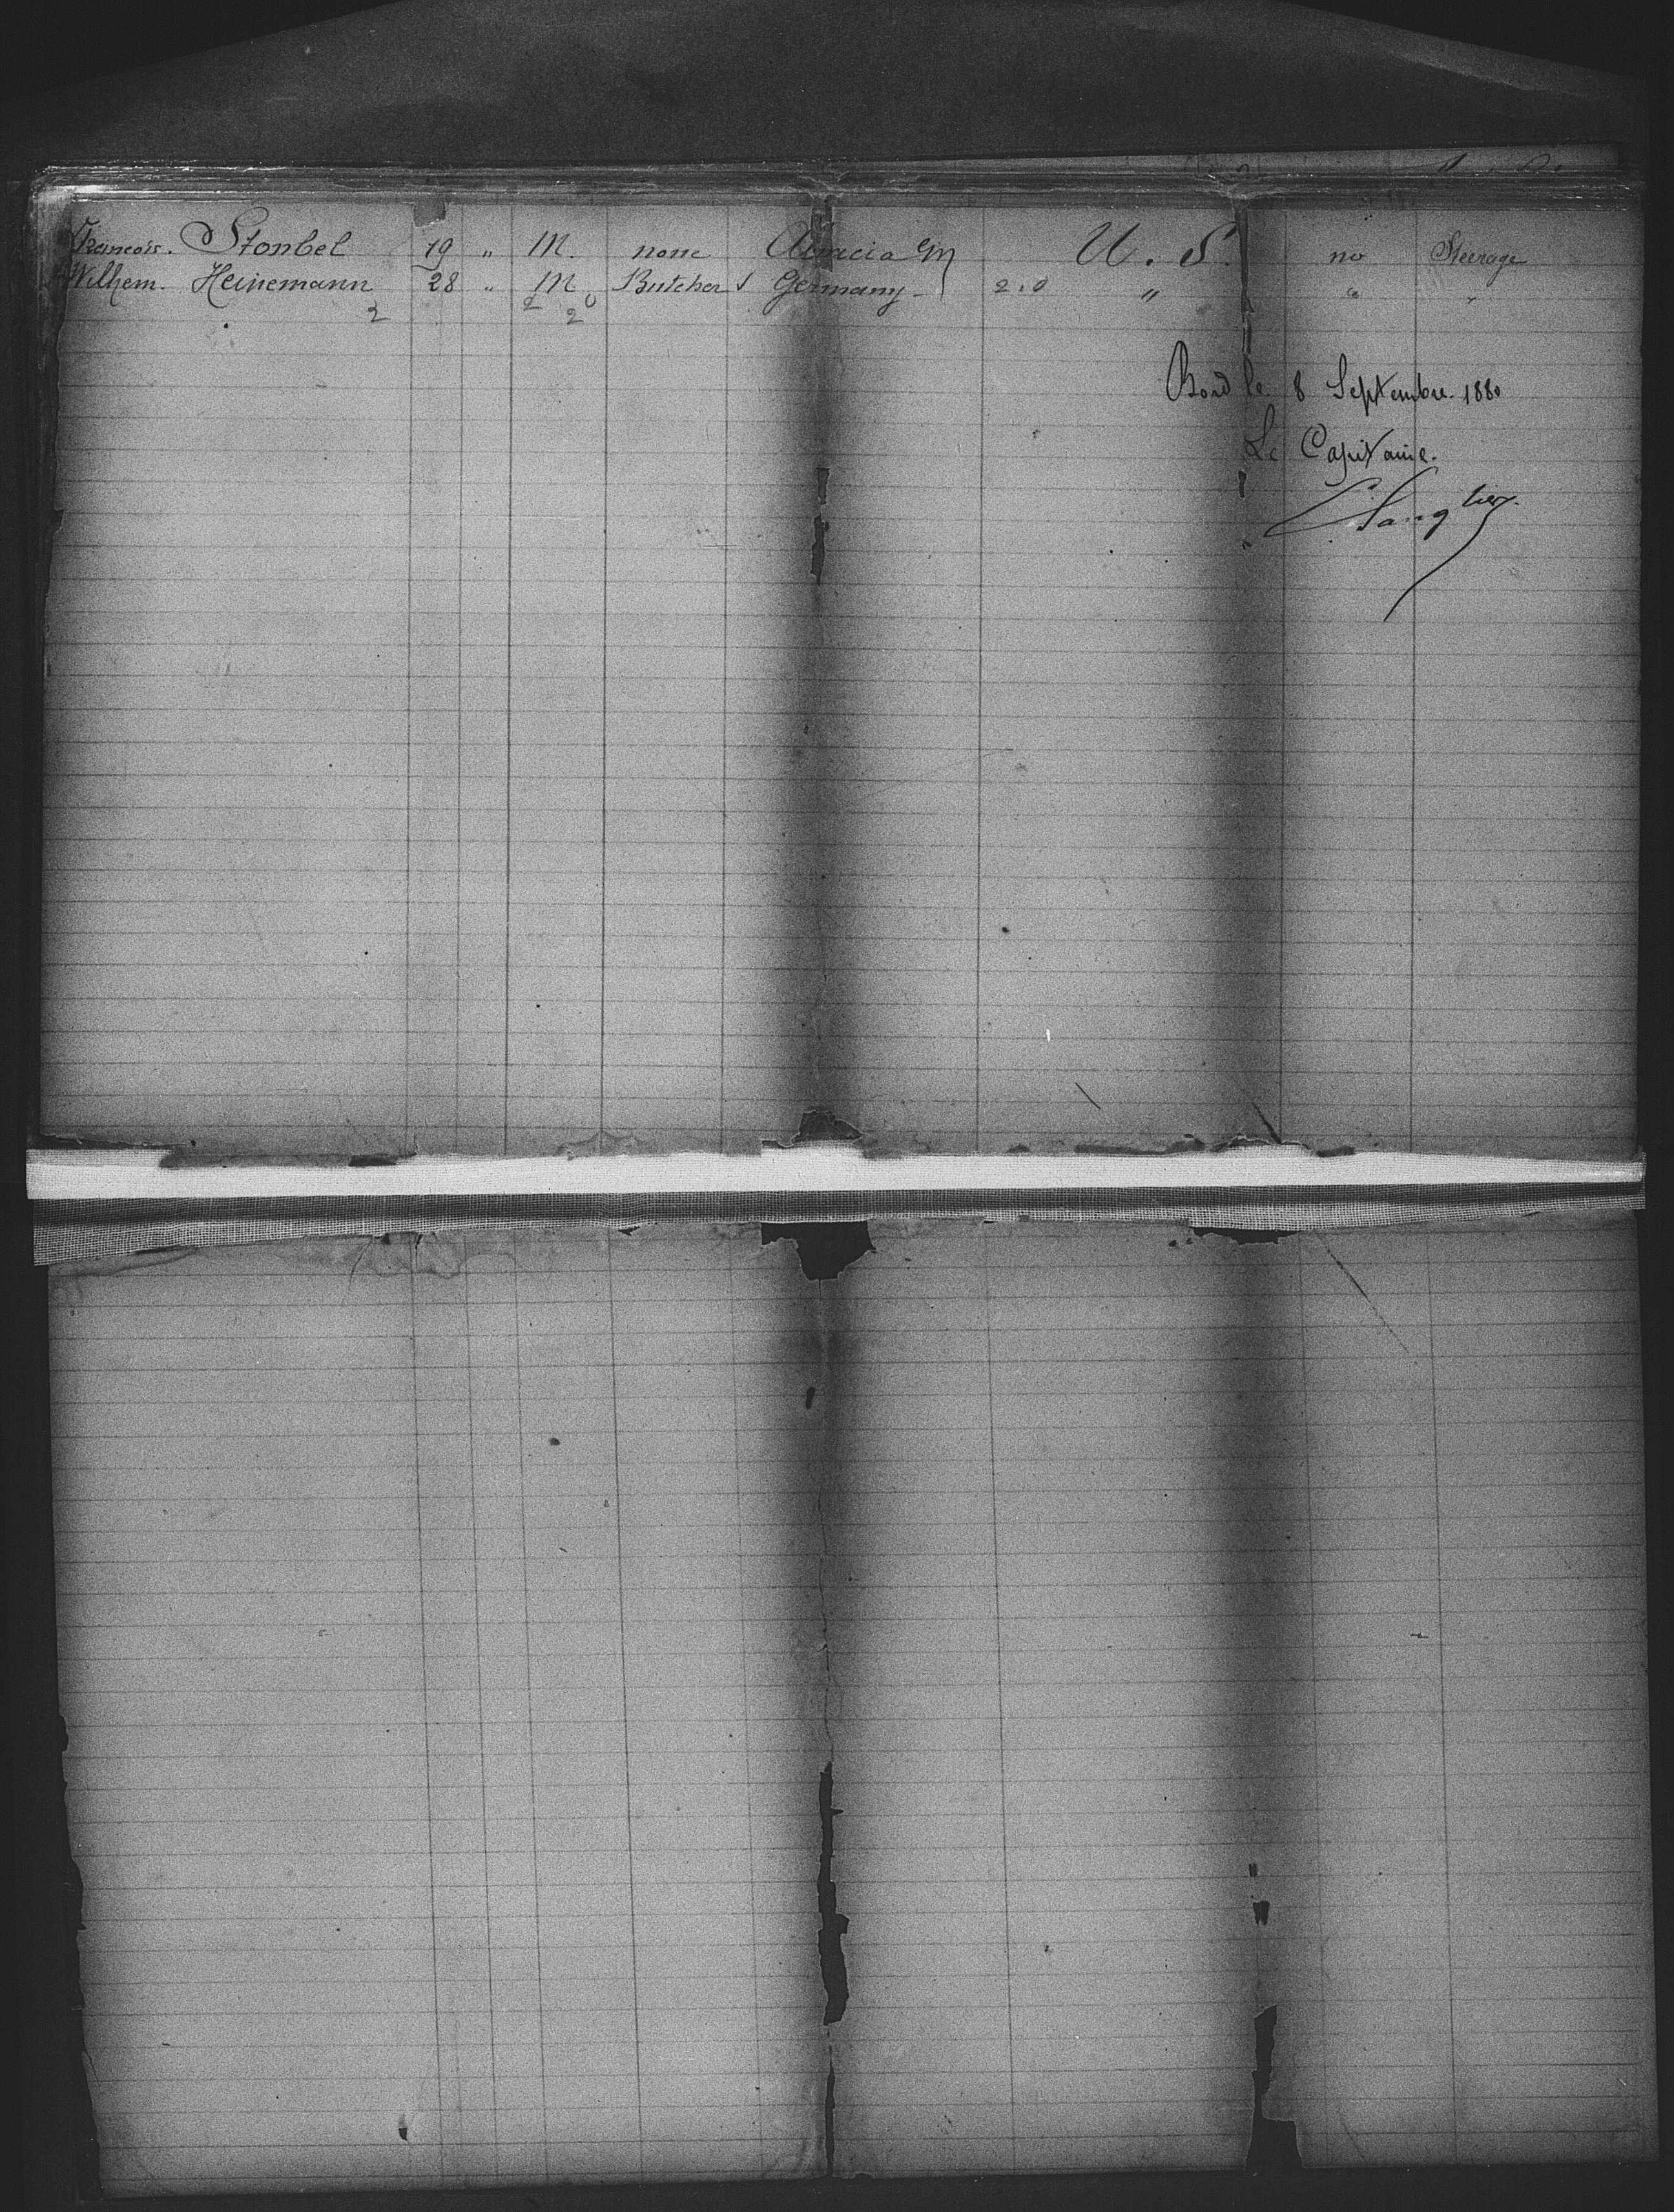 Francois. Stonbel 19 " M. none Alsacia U. S. no Steerage
Wilhem. Heinemann 28 " M Butcher Germany 2.0 " " "
2 2 20
Bord le 8 Septembre 1880
Le Capitaine.